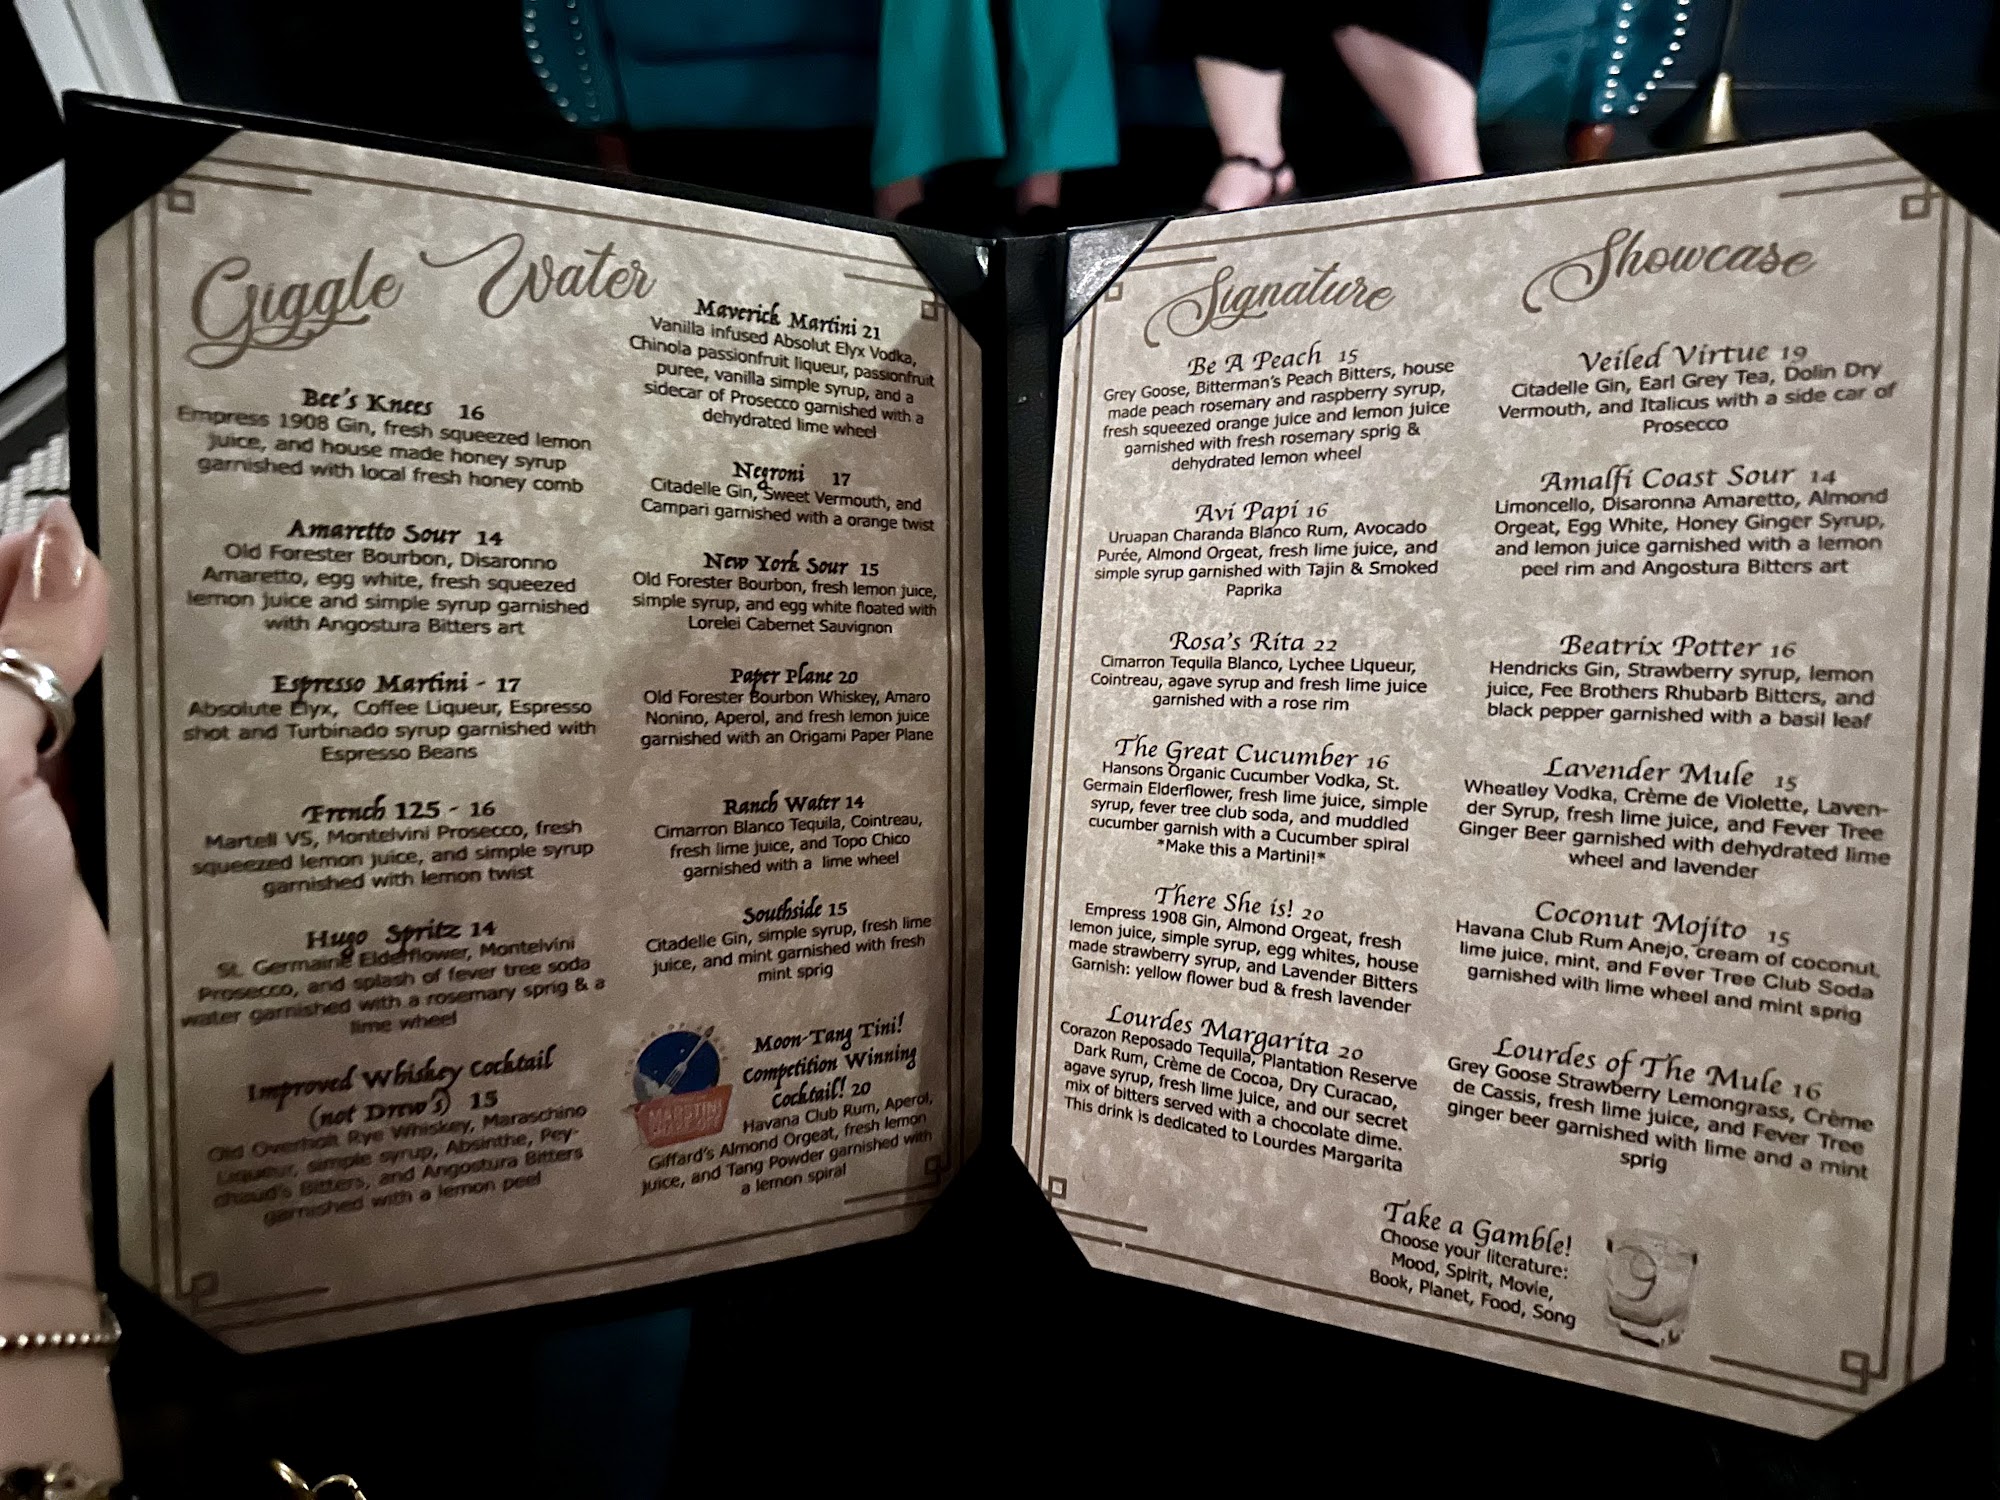 Giggle Water
Bee's Knees 16
Empress 1908 Gin, fresh squeezed lemon
juice, and house made honey syrup
garnished with local fresh honey comb
Amaretto Sour 14
Old Forester Bourbon, Disaronno
Amaretto, egg white, fresh squeezed
lemon juice and simple syrup garnished
with Angostura Bitters art
Espresso Martini - 17
Absolute Elyx, Coffee Liqueur, Espresso
shot and Turbinado syrup garnished with
Espresso Beans
French 125 - 16
Martell VS, Montelvini Prosecco, fresh
squeezed lemon juice, and simple syrup
garnished with lemon twist
Hugo Spritz 14
St. Germaine Elderflower, Montelvini
Prosecco, and splash of fever tree soda
water garnished with a rosemary sprig & a
lime wheel
Improved Whiskey Cocktail
(not Drew's) 15
Old Overholt Rye Whiskey, Maraschino
Liqueur, simple syrup, Absinthe, Pey-
chaud's Bitters, and Angostura Bitters
garnished with a lemon peel
Maverick Martini 21
Vanilla infused Absolut Elyx Vodka,
Chinola passionfruit liqueur, passionfruit
puree, vanilla simple syrup, and a
sidecar of Prosecco garnished with a
dehydrated lime wheel
Negroni 17
Citadelle Gin, Sweet Vermouth, and
Campari garnished with a orange twist
New York Sour 15
Old Forester Bourbon, fresh lemon juice,
simple syrup, and egg white floated with
Lorelei Cabernet Sauvignon
Paper Plane 20
Old Forester Bourbon Whiskey, Amaro
Nonino, Aperol, and fresh lemon juice
garnished with an Origami Paper Plane
Ranch Water 14
Cimarron Blanco Tequila, Cointreau,
fresh lime juice, and Topo Chico
garnished with a lime wheel
Southside 15
Citadelle Gin, simple syrup, fresh lime
juice, and mint garnished with fresh
mint sprig
Moon-Tang Tini!
Competition Winning
Cocktail! 20
Havana Club Rum, Aperol,
Giffard's Almond Orgeat, fresh lemon
juice, and Tang Powder garnished with
a lemon spiral
Signature
Be A Peach 15
Grey Goose, Bitterman's Peach Bitters, house
made peach rosemary and raspberry syrup,
fresh squeezed orange juice and lemon juice
garnished with fresh rosemary sprig &
dehydrated lemon wheel
Avi Papi 16
Uruapan Charanda Blanco Rum, Avocado
Purée, Almond Orgeat, fresh lime juice, and
simple syrup garnished with Tajin & Smoked
Paprika
Rosa's Rita 22
Cimarron Tequila Blanco, Lychee Liqueur,
Cointreau, agave syrup and fresh lime juice
garnished with a rose rim
The Great Cucumber 16
Hansons Organic Cucumber Vodka, St.
Germain Elderflower, fresh lime juice, simple
syrup, fever tree club soda, and muddled
cucumber garnish with a Cucumber spiral
*Make this a Martini!*
There She is! 20
Empress 1908 Gin, Almond Orgeat, fresh
lemon juice, simple syrup, egg whites, house
made strawberry syrup, and Lavender Bitters
Garnish: yellow flower bud & fresh lavender
Lourdes Margarita 20
Corazon Reposado Tequila, Plantation Reserve
Dark Rum, Crème de Cocoa, Dry Curacao,
agave syrup, fresh lime juice, and our secret
mix of bitters served with a chocolate dime.
This drink is dedicated to Lourdes Margarita
Showcase
Veiled Virtue 19
Citadelle Gin, Earl Grey Tea, Dolin Dry
Vermouth, and Italicus with a side car of
Prosecco
Amalfi Coast Sour 14
Limoncello, Disaronna Amaretto, Almond
Orgeat, Egg White, Honey Ginger Syrup,
and lemon juice garnished with a lemon
peel rim and Angostura Bitters art
Beatrix Potter 16
Hendricks Gin, Strawberry syrup, lemon
juice, Fee Brothers Rhubarb Bitters, and
black pepper garnished with a basil leaf
Lavender Mule 15
Wheatley Vodka, Crème de Violette, Laven-
der Syrup, fresh lime juice, and Fever Tree
Ginger Beer garnished with dehydrated lime
wheel and lavender
Coconut Mojito 15
Havana Club Rum Anejo, cream of coconut,
lime juice, mint, and Fever Tree Club Soda
garnished with lime wheel and mint sprig
Lourdes of The Mule 16
Grey Goose Strawberry Lemongrass, Crème
de Cassis, fresh lime juice, and Fever Tree
ginger beer garnished with lime and a mint
sprig
Take a Gamble!
Choose your literature:
Mood, Spirit, Movie,
Book, Planet, Food, Song